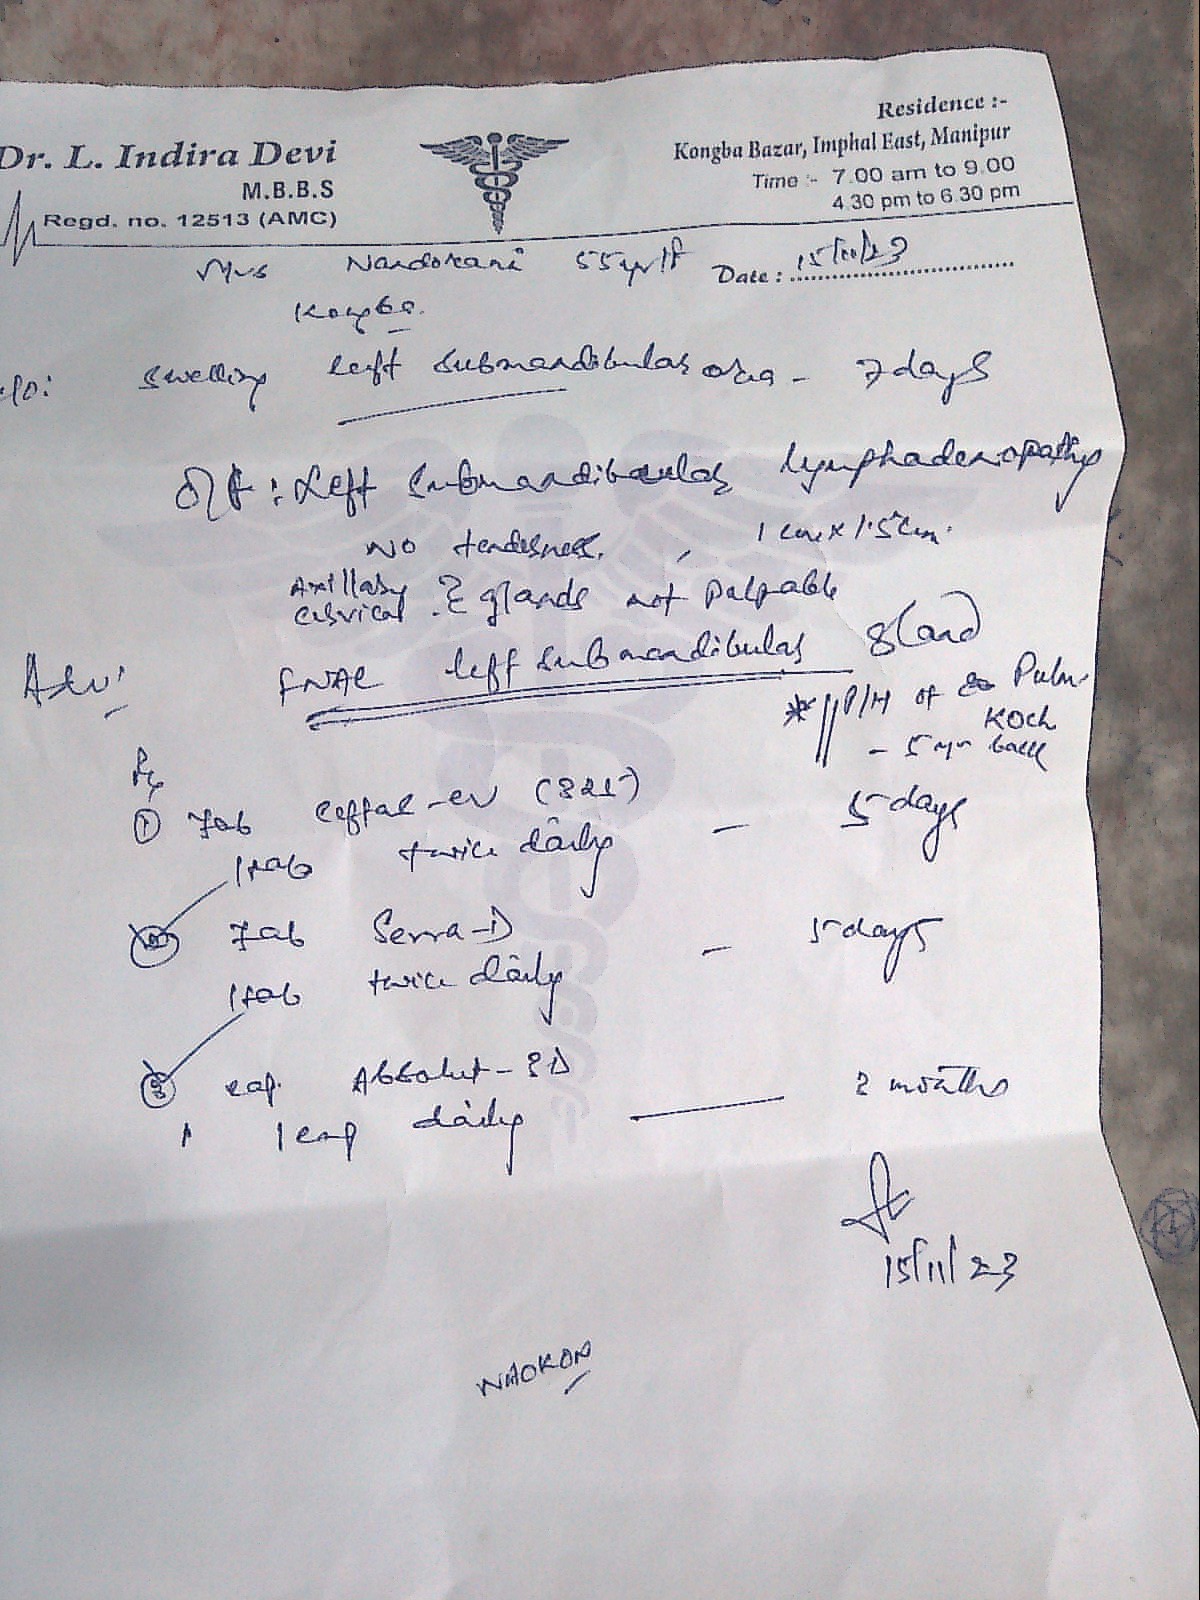 Dr. L. Indira Devi
M.B.B.S
Regd. no. 12513 (AMC)
Residence :-
Kongba Bazar, Imphal East, Manipur
Time :- 7.00 am to 9.00
4.30 pm to 6.30 pm
Mrs Nandorani 55yr/f Date : 15/11/23
Kongba.
c/o: Swelling left submandibular area - 7days
O/E : Left submandibular lymphadenopathy
NO tenderness, 1 cm x 1.5cm.
Axillary
cervical } glands not palpable
Adv: FNAC left submandibular gland
* P/H of Pulm.
KOCH
- 5 yr back
Rx
① Tab Ceftas-CV (325) - 5 days
1tab twice daily
② Tab Serra-D - 5days
1tab twice daily
③ Cap. Absolut-3D 2 months
1 cap daily
15/11/23
NAOKON